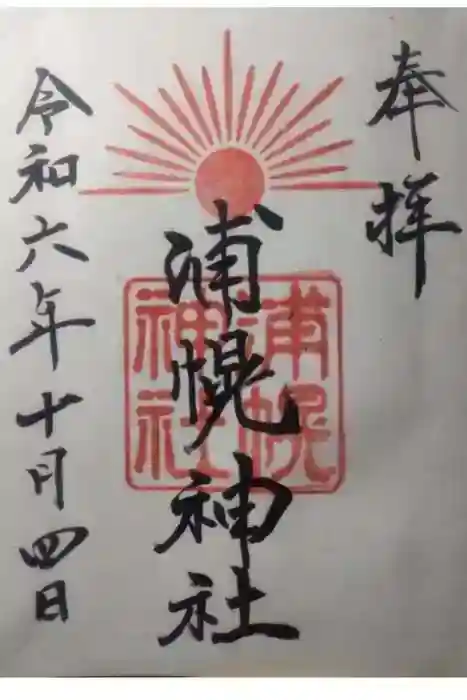 奉拝
浦幌神社
浦幌
神社
令和六年十月四日